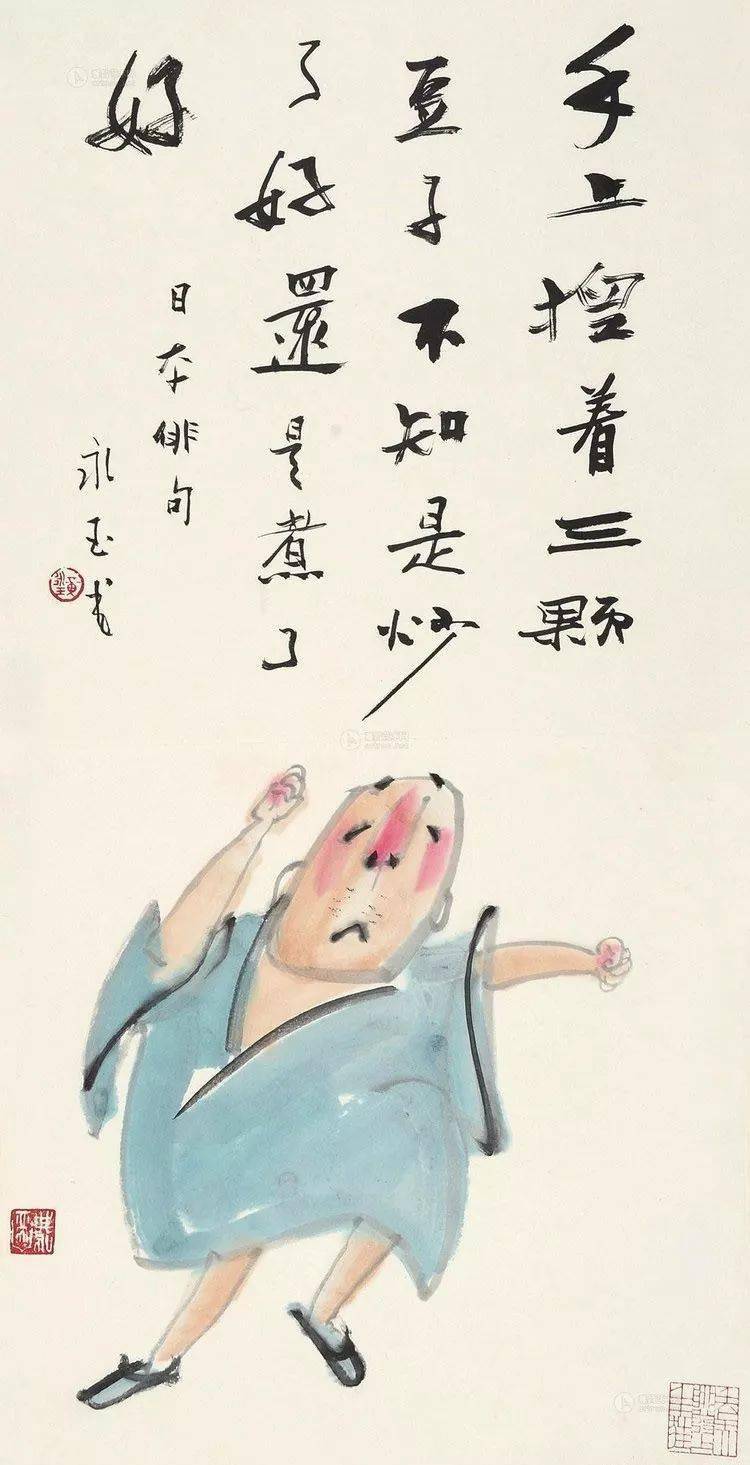 手上捏着三颗
豆子不知是炒
了好還是煮了
好
日本俳句
永玉戈